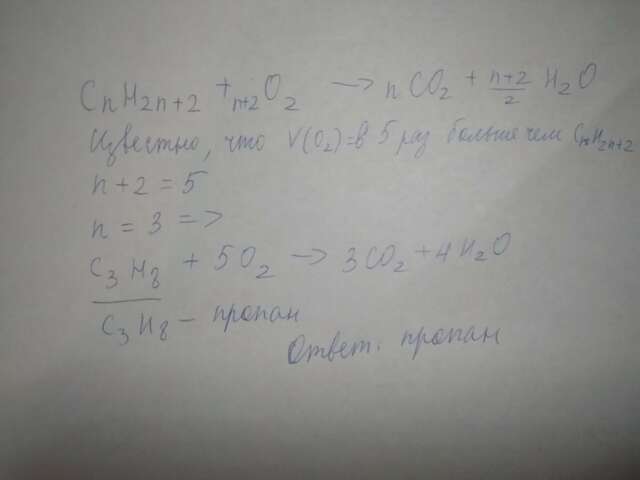 CnH2n+2 + n+2 O2 → nCO2 + n+2/2 H2O
Известно, что V(O2)=в 5 раз больше чем CnH2n+2
n+2=5
n=3 =>
C3H8 + 5O2 → 3CO2+4H2O
C3H8 – пропан
Ответ: пропан